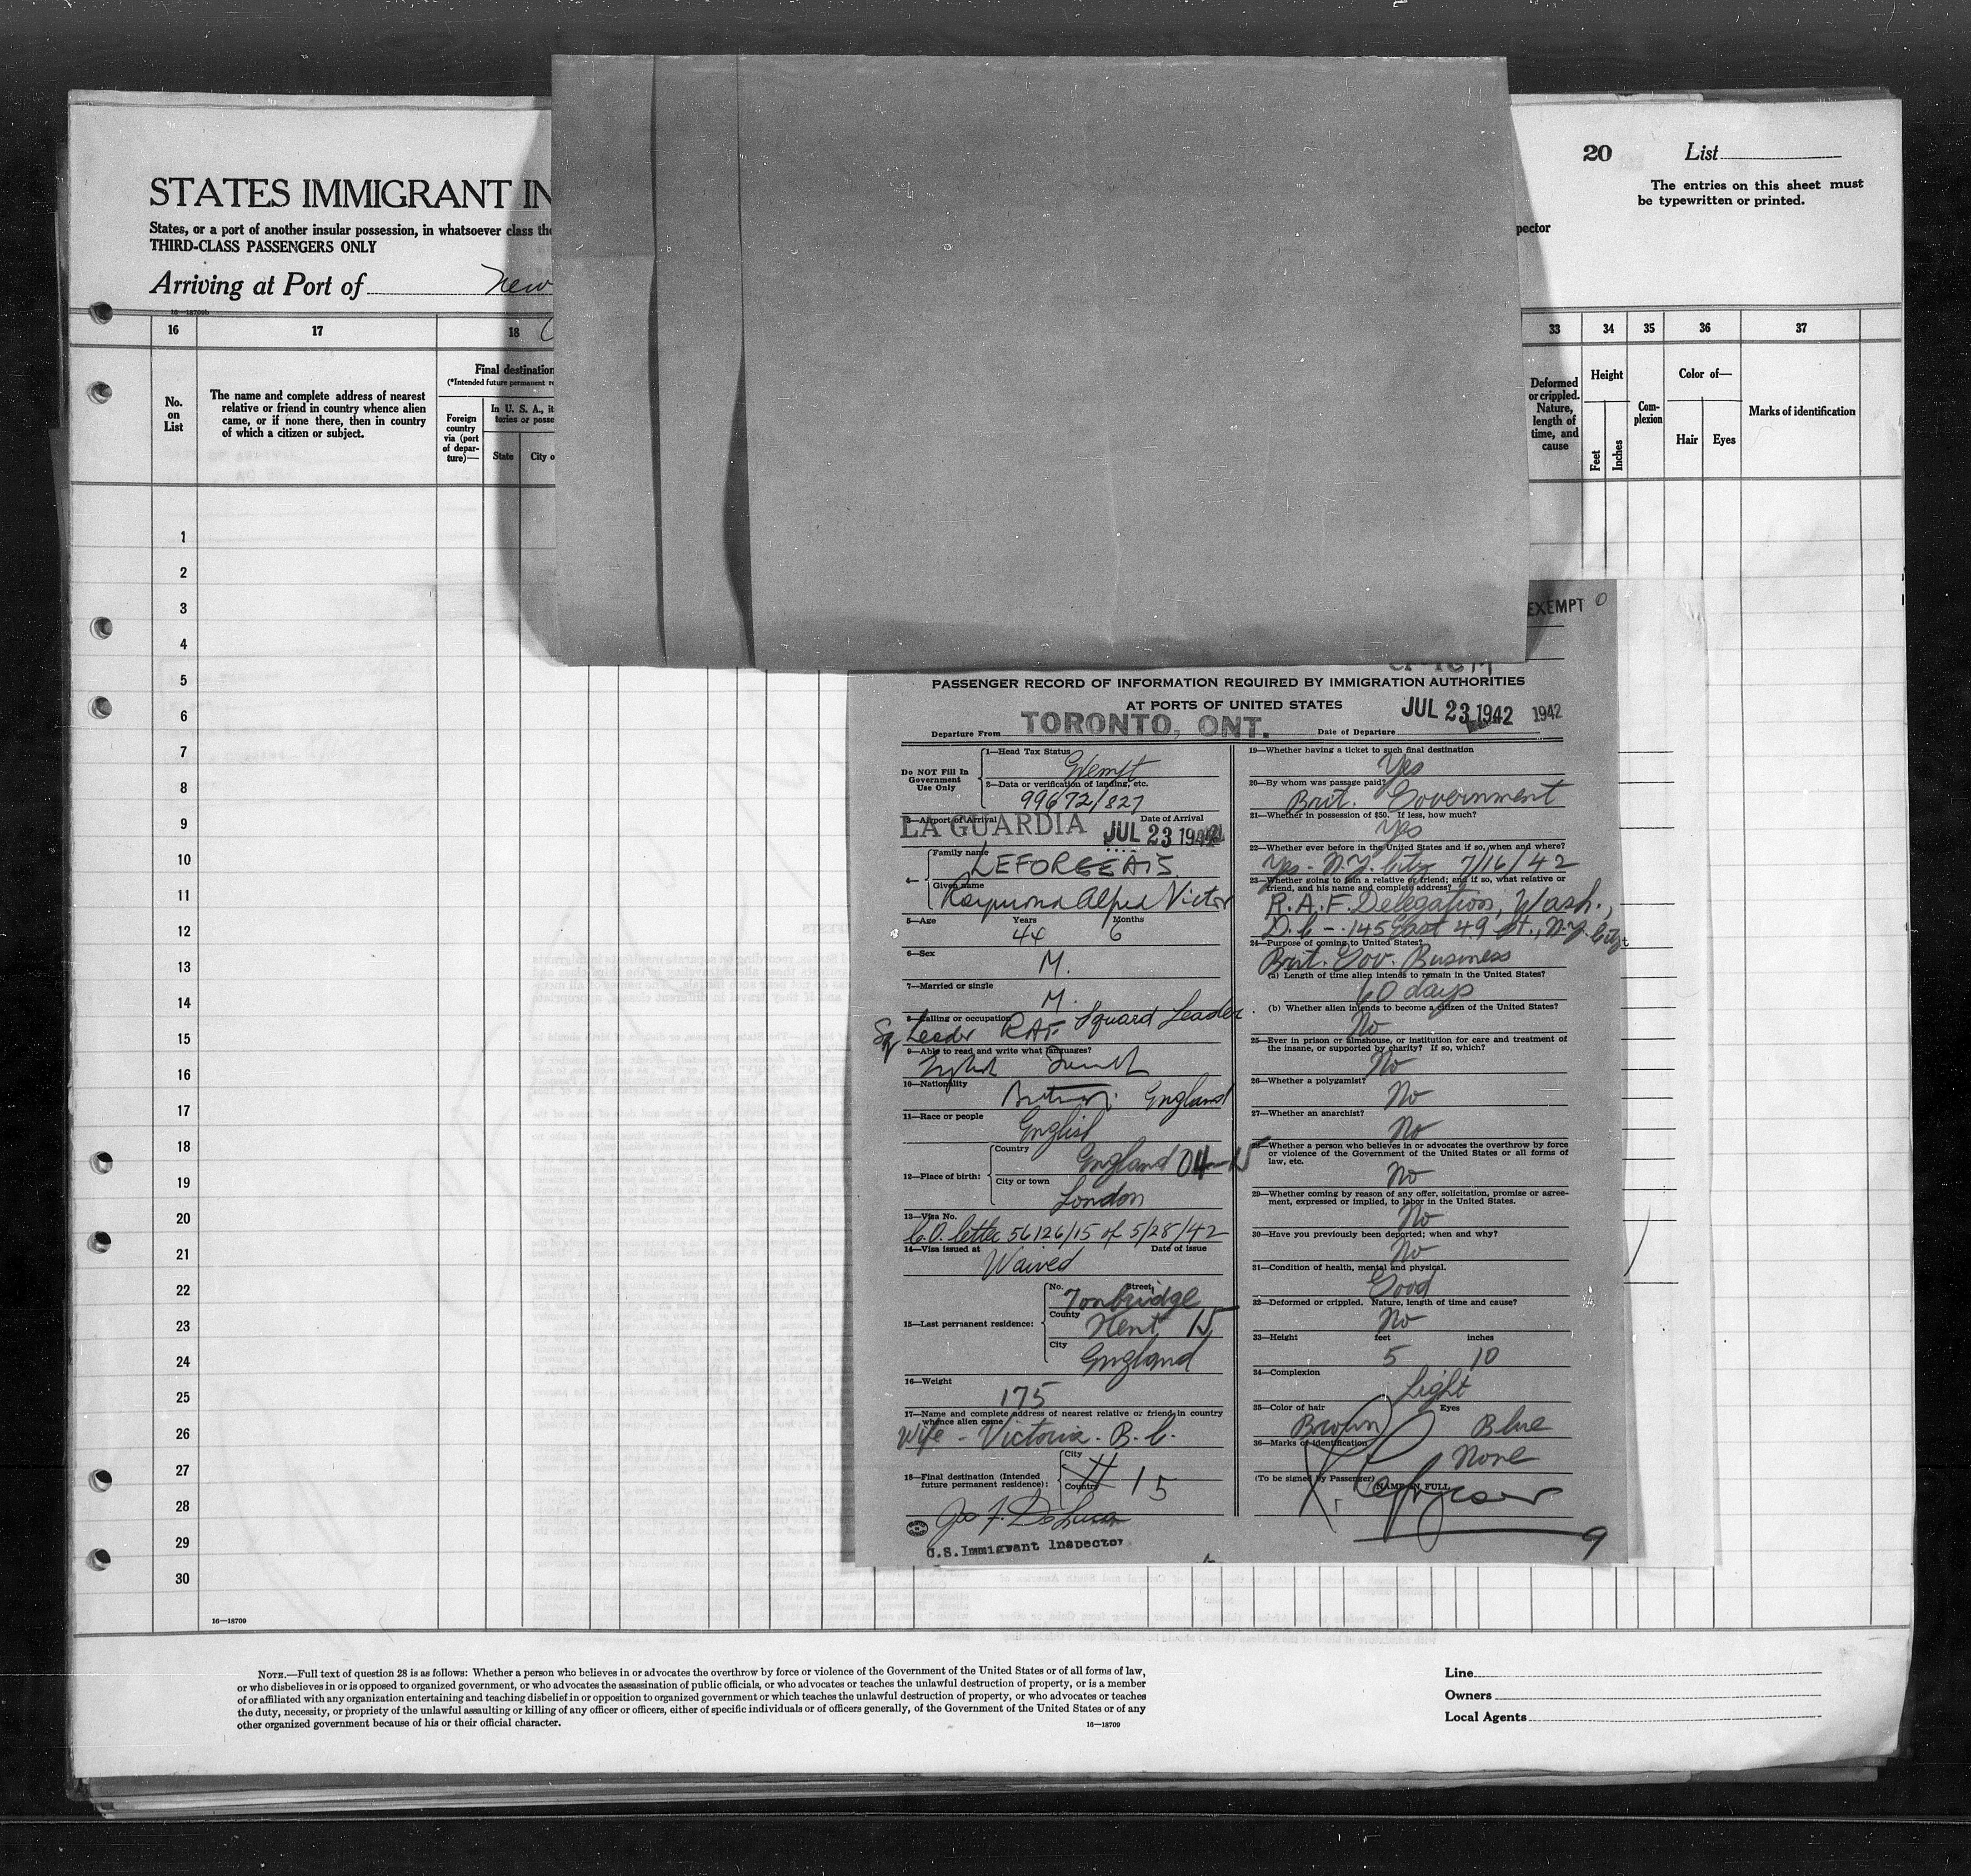 20 List
The entries on this sheet must
be typewritten or printed.
STATES IMMIGRANT IN
States, or a port of another insular possession, in whatsoever class the
THIRD-CLASS PASSENGERS ONLY
pector
Arriving at Port of New
16—18709b
16 17 18 33 34 35 36 37
No.
on
List
The name and complete address of nearest
relative or friend in country whence alien
came, or if none there, then in country
of which a citizen or subject.
Final destination
(*Intended future permanent re
Foreign
country
via (port
of depar-
ture)—
In U. S. A., it
tories or posse
State City o
Deformed
or crippled.
Nature,
length of
time, and
cause
Height
Feet Inches
Com-
plexion
Color of—
Hair Eyes
Marks of identification
1
2
3
4
5
6
7
8
9
10
11
12
13
14
15
16
17
18
19
20
21
22
23
24
25
26
27
28
29
30
EXEMPT 0
PASSENGER RECORD OF INFORMATION REQUIRED BY IMMIGRATION AUTHORITIES
AT PORTS OF UNITED STATES
Departure From TORONTO, ONT. Date of Departure JUL 23 1942 1942
Do NOT Fill In
Government
Use Only
1—Head Tax Status
Exempt
2—Data or verification of landing, etc.
99672/827
3—Airport of Arrival Date of Arrival
LA GUARDIA JUL 23 1942
4— Family name
LEFORGEAIS
Given name
Raymond Alfred Victor
5—Age Years Months
44 6
6—Sex
M.
7—Married or single
M.
8—Calling or occupation
Sq Leader RAF Squard Leader
9—Able to read and write what languages?
English French
10—Nationality
British England
11—Race or people
English
12—Place of birth: Country
England 04-15
City or town
London
13—Visa No.
C.O. letter 56126/15 of 5/28/42
14—Visa issued at Date of issue
Waived
15—Last permanent residence: No. Street
Tonbridge
County
Kent 15
City
England
16—Weight
175
17—Name and complete address of nearest relative or friend in country
whence alien came
Wife - Victoria. B.C.
18—Final destination (Intended
future permanent residence): City
Country 15
Jos F. DeLuca
U.S. Immigrant Inspector
19—Whether having a ticket to such final destination
Yes
20—By whom was passage paid?
Brit. Government
21—Whether in possession of $50. If less, how much?
Yes
22—Whether ever before in the United States and if so, when and where?
Yes - N.Y. City 7/16/42
23—Whether going to join a relative or friend; and if so, what relative or
friend, and his name and complete address?
R.A.F. Delegation, Wash.,
D.C - 145 East 49 St., N.Y. City
24—Purpose of coming to United States?
Brit. Gov. Business
(a) Length of time alien intends to remain in the United States?
60 days
(b) Whether alien intends to become a citizen of the United States?
No
25—Ever in prison or almshouse, or institution for care and treatment of
the insane, or supported by charity? If so, which?
No
26—Whether a polygamist?
No
27—Whether an anarchist?
No
28—Whether a person who believes in or advocates the overthrow by force
or violence of the Government of the United States or all forms of
law, etc.
No
29—Whether coming by reason of any offer, solicitation, promise or agree-
ment, expressed or implied, to labor in the United States.
No
30—Have you previously been deported; when and why?
No
31—Condition of health, mental and physical.
Good
32—Deformed or crippled. Nature, length of time and cause?
No
33—Height feet inches
5 10
34—Complexion
Light
35—Color of hair Eyes
Brown Blue
36—Marks of identification
None
(To be signed by Passenger)
NAME IN FULL
9
16—18709
NOTE.—Full text of question 28 is as follows: Whether a person who believes in or advocates the overthrow by force or violence of the Government of the United States or of all forms of law,
or who disbelieves in or is opposed to organized government, or who advocates the assassination of public officials, or who advocates or teaches the unlawful destruction of property, or is a member
of or affiliated with any organization entertaining and teaching disbelief in or opposition to organized government or which teaches the unlawful destruction of property, or who advocates or teaches
the duty, necessity, or propriety of the unlawful assaulting or killing of any officer or officers, either of specific individuals or of officers generally, of the Government of the United States or of any
other organized government because of his or their official character.
16—18709
Line
Owners
Local Agents